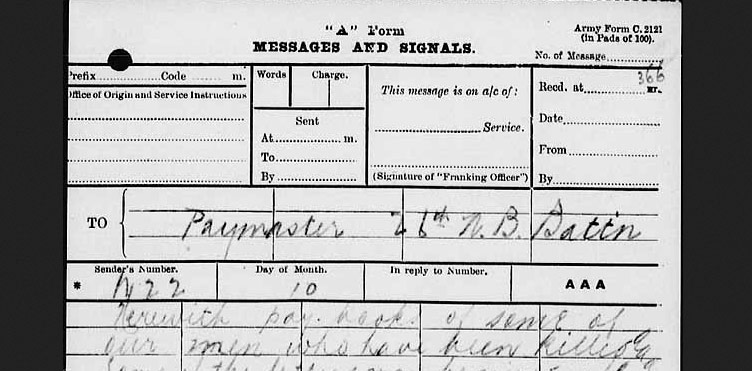 "A" Form
MESSAGES AND SIGNALS.
Army Form C. 2121
(in Pads of 100).
No. of Message
366
Prefix Code m.
Office of Origin and Service Instructions
Words Charge.
Sent
At m.
To
By
This message is on a/c of:
Service.
(Signature of "Franking Officer")
Recd. at m.
Date
From
By
TO Paymaster 26th N.B. Battn
Sender's Number. Day of Month. In reply to Number. AAA
* N22 10
Herewith pay books of some of
our men who have been killed